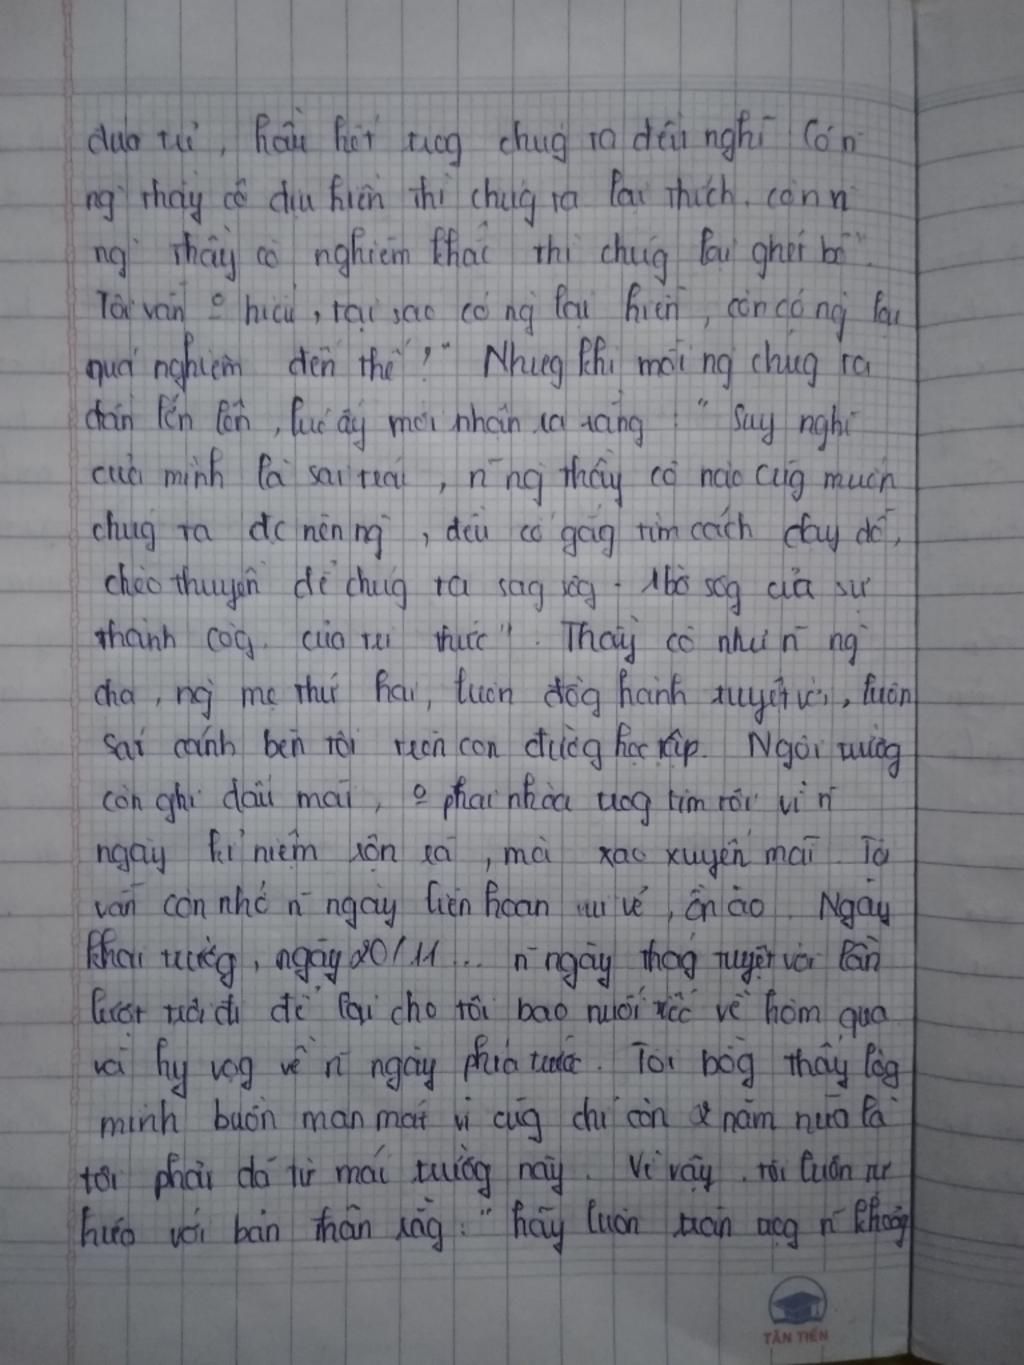 đưa trẻ, hầu hết trog chúg ta đều nghĩ còn
ng` thầy cô dịu hiền thì chúg ta lại thích. còn n~
ng` thầy cô nghiêm khắc thì chúg lại ghét bỏ".
Tôi vẫn o hiểu, tại sao có ng` lại hiền, còn có ng` lại
quá nghiêm đến thế?" Nhưg khi mỗi ng` chúg ta
dần lớn lên, lúc ấy mới nhận ra rằng: "Suy nghĩ
của mình là sai trái, n~ ng` thầy cô nào cũg muốn
chúg ta đc nên ng`, đều cố gắg tìm cách dạy dỗ,
chèo thuyền để chúg ta sag sôg - 1 bờ sôg của sự
thành côg. của tri thức". Thầy cô như n~ ng`
cha, ng` mẹ thứ hai, luôn đồg hành tuyệt vời, luôn
sát cánh bên tôi trên con đườg học tập. Ngôi trườg
còn ghi dấu mãi, o phai nhòa trog tim tôi vì n~
ngày kỉ niệm rộn rã, mà xao xuyến mãi. Tô
vẫn còn nhớ n~ ngày liên hoan vui vẻ, ồn ào. Ngày
khai trườg, ngày 20/11... n~ ngày thág tuyệt vời lần
lượt trôi đi để lại cho tôi bao nuối tiếc về hôm qua
và hy vọg về n~ ngày phía trước. Tôi bỗg thấy lòg
mình buồn man mát vì cũg chỉ còn 2 năm nữa là
tôi phải dã từ mái trườg này. Vì vậy. tôi luôn tự
hứa với bản thân rằg: "hãy luôn trân trọg n~ khoảg
TÂN TIẾN